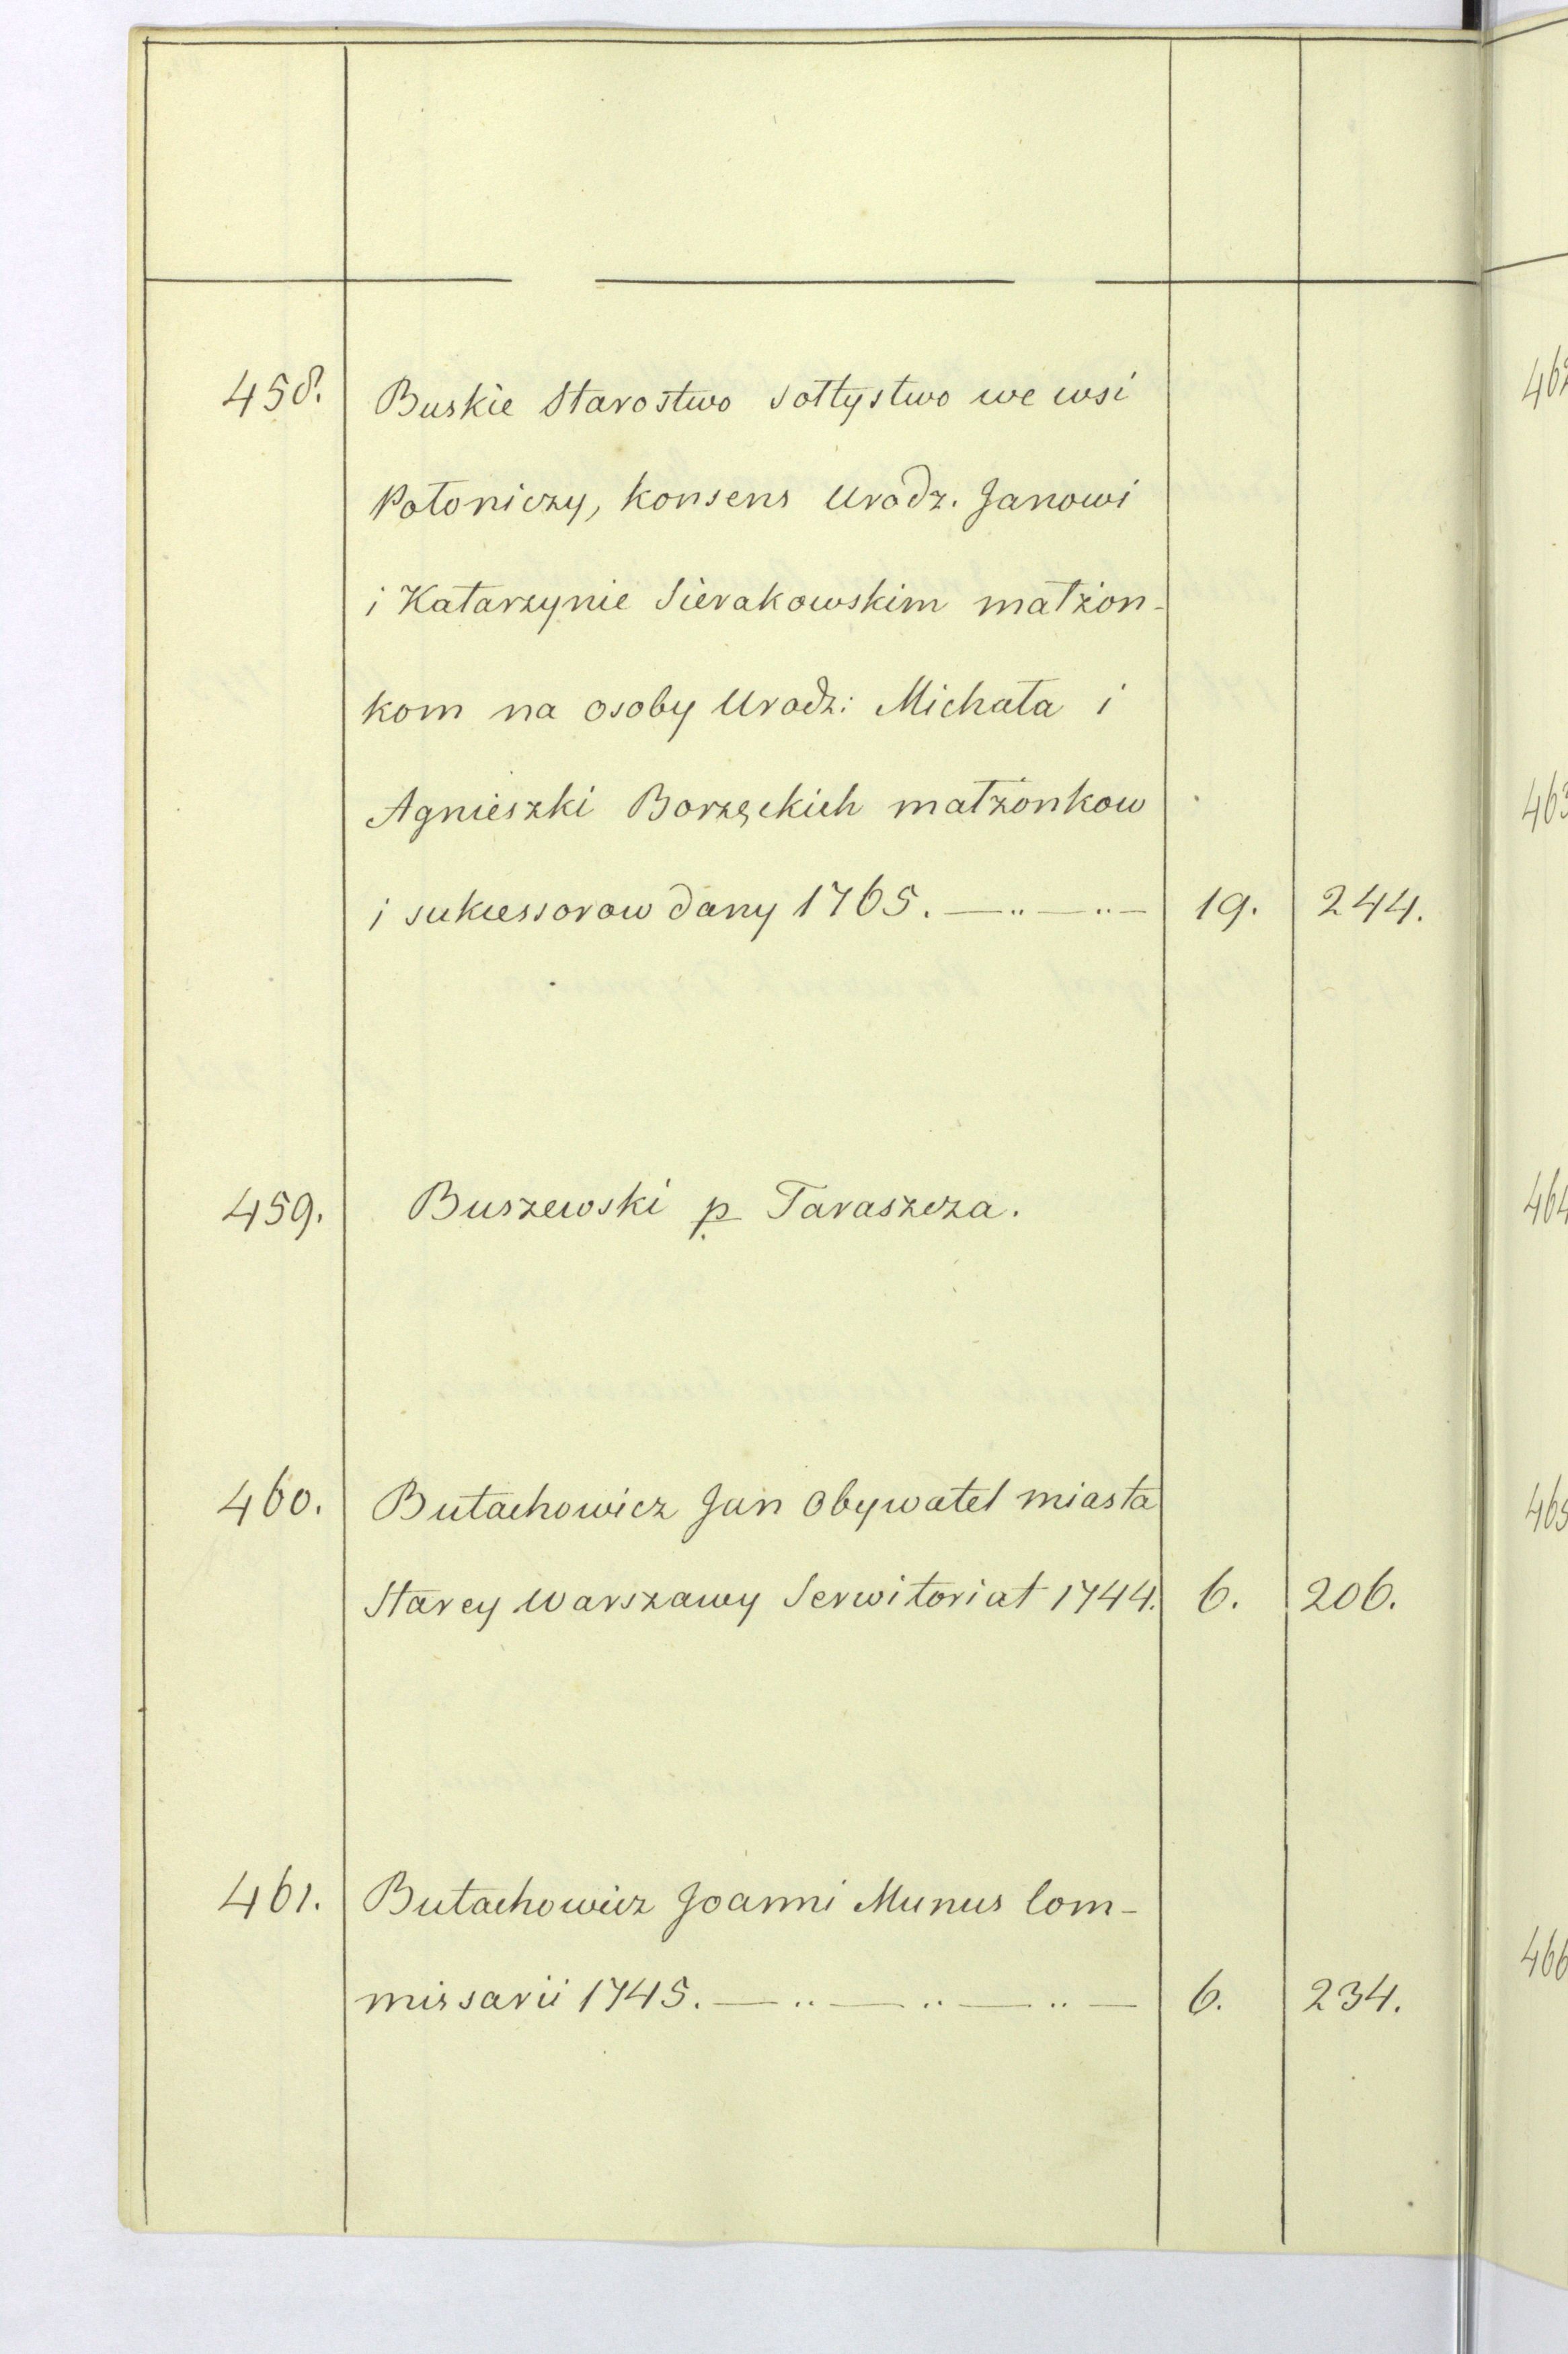 458. Buskie Starostwo Sołtystwo we wsi
Połoniczy, konsens Urodz. Janowi
i Katarzynie Sierakowskim małżon-
kom na osoby Urodz: Michała i
Agnieszki Borzęckich małżonkow
i sukcessorow dany 1765. —"—"— 19. 244.
459. Buszewski p Taraszcza.
460. Butachowicz Jan Obywatel miasta
Starey Warszawy Serwitoriat 1744. 6. 206.
461. Butachowicz Joanni Munus Com-
missarii 1745. —"—"—"— 6. 234.
463
464
465
466